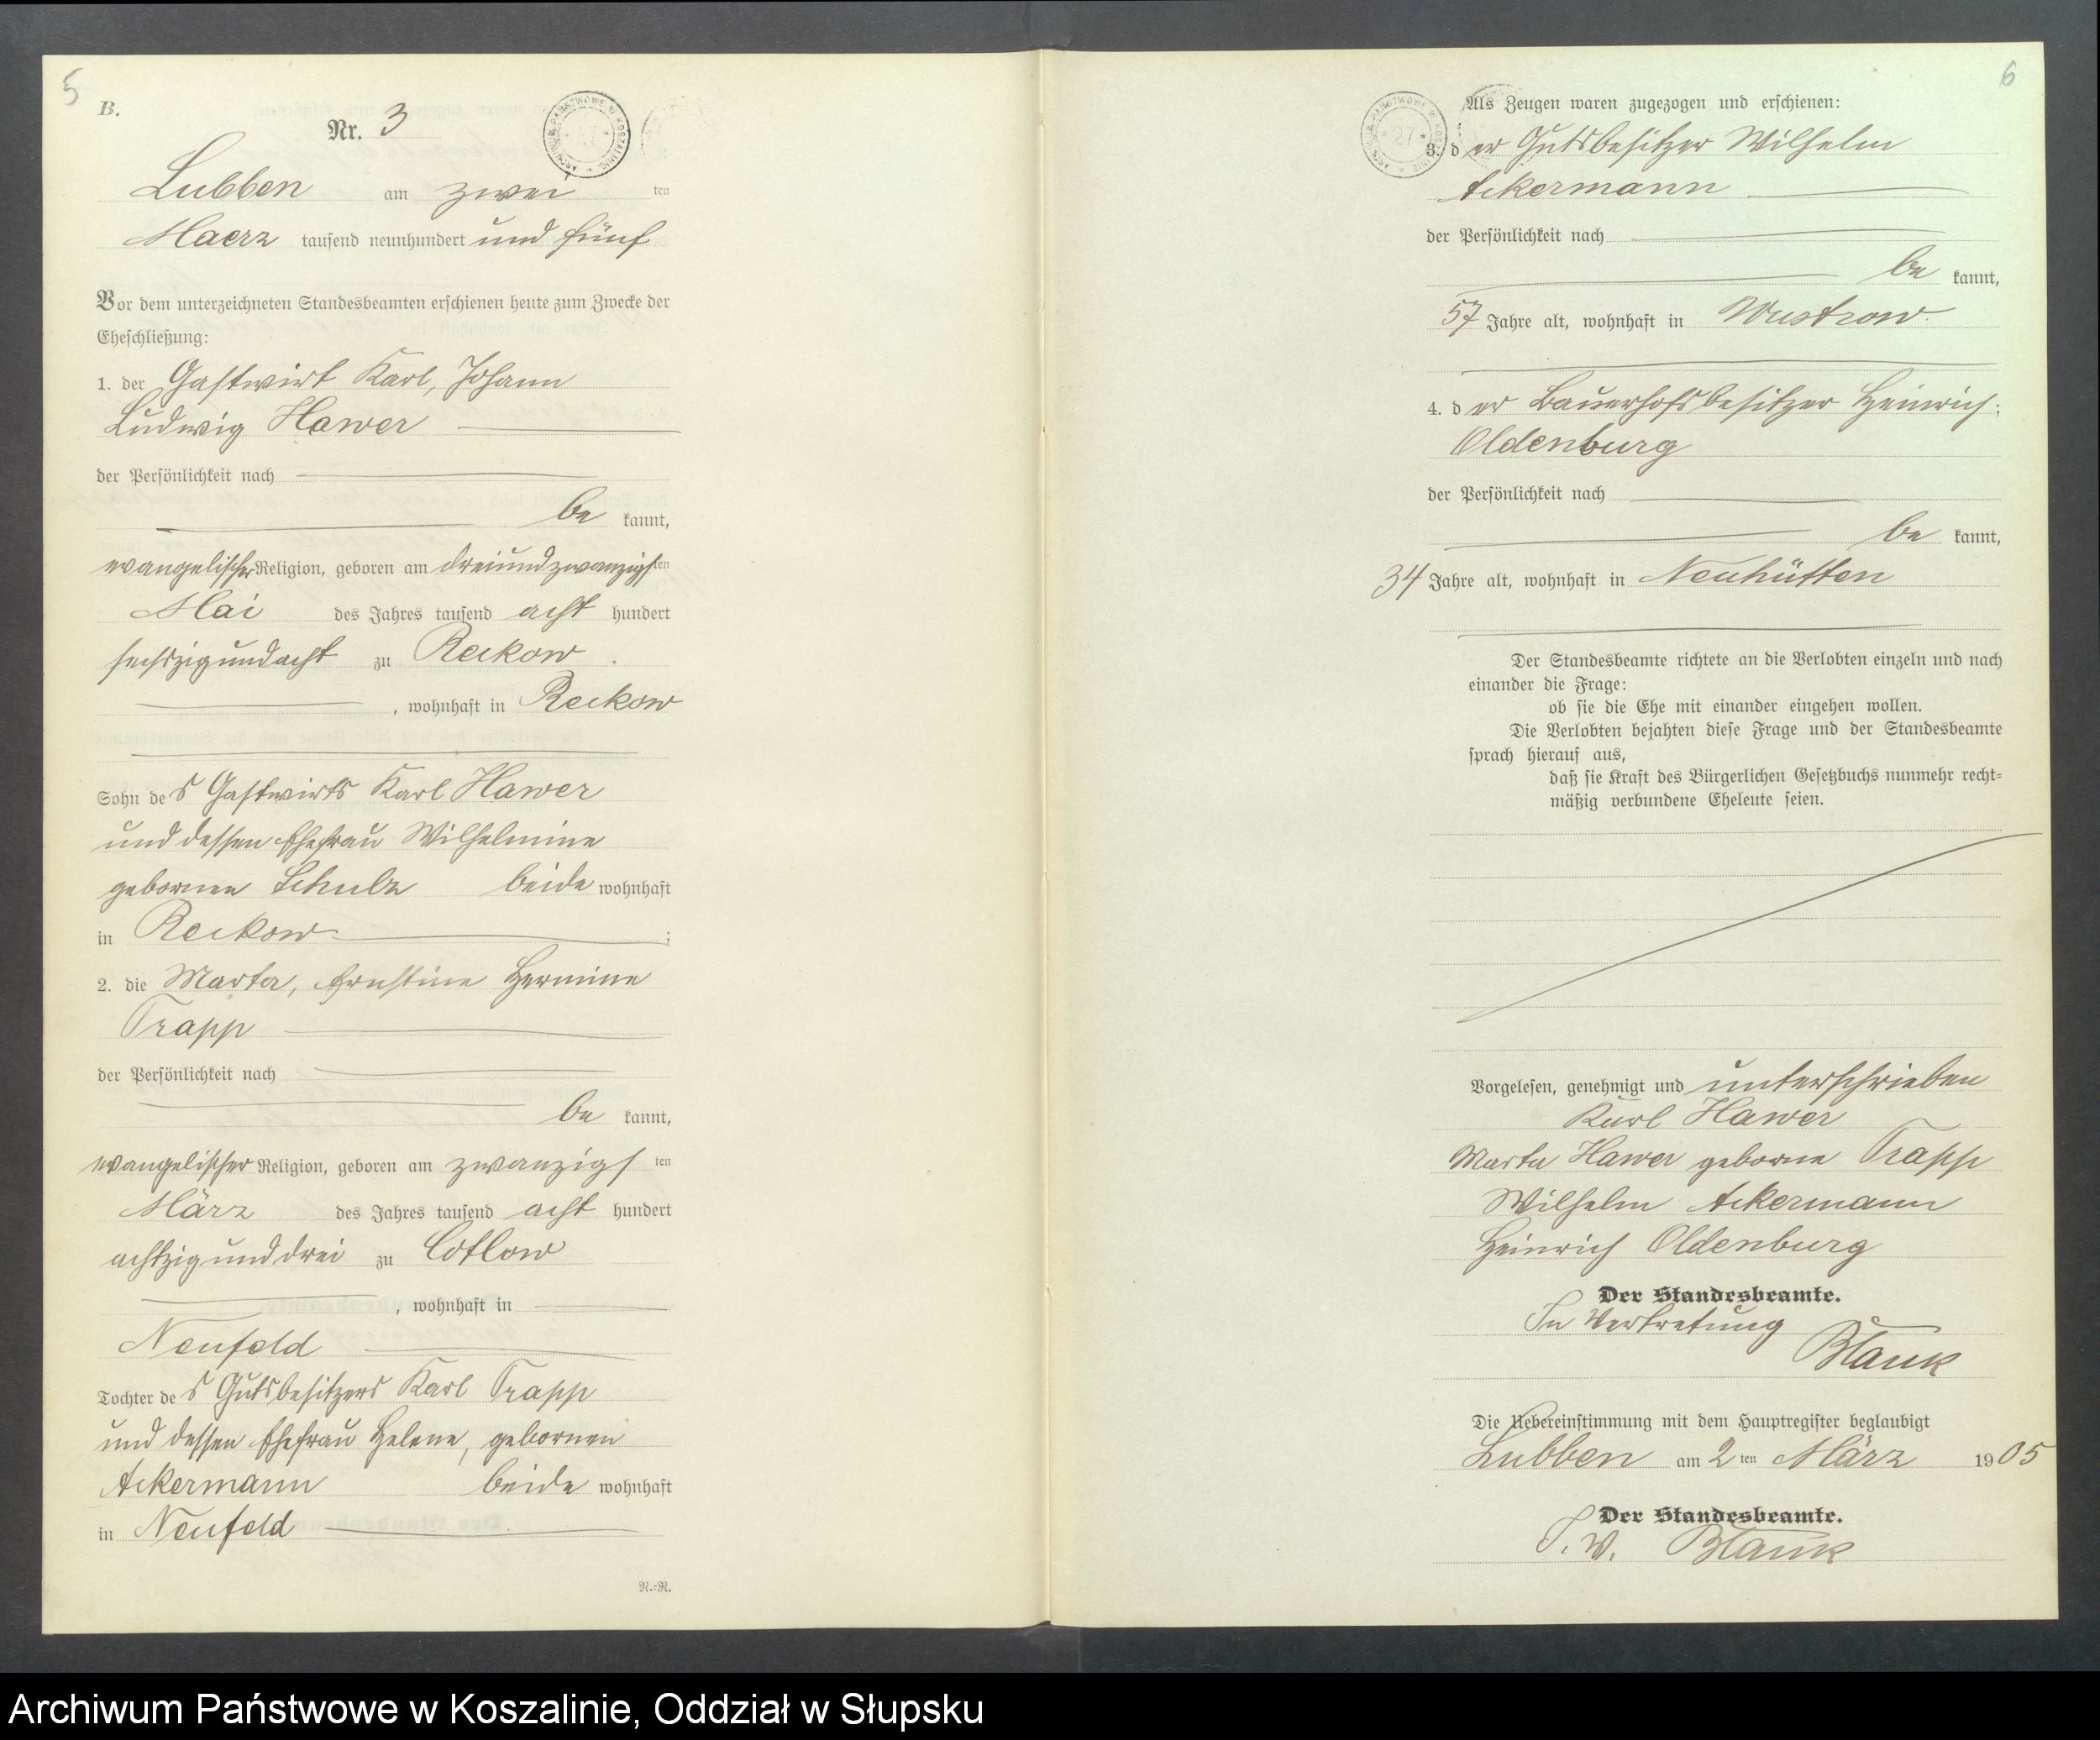 5
B.
Nr. 3
ARCHIWUM PAŃSTWOWE W KOSZALINIE
Lubben am zwei ten
Maerz tausend neunhundert und fünf
Vor dem unterzeichneten Standesbeamten erschienen heute zum Zwecke der
Eheschließung:
1. der Gastwirt Karl, Johann
Ludwig Hawer
der Persönlichkeit nach
be kannt,
evangelischer Religion, geboren am dreiundzwanzigsten
Mai des Jahres tausend acht hundert
sechszigundacht zu Reckow
, wohnhaft in Reckow
Sohn des Gastwirts Karl Hawer
und dessen Ehefrau Wilhelmine
gebornen Schulz beide wohnhaft
in Reckow ;
2. die Marta, Ernstine Hermine
Trapp
der Persönlichkeit nach
be kannt,
evangelischer Religion, geboren am zwanzigsten
März des Jahres tausend acht hundert
achtzigunddrei zu Cotlow
, wohnhaft in
Neufeld
Tochter des Gutsbesitzers Karl Trapp
und dessen Ehefrau Helene, gebornen
Ackermann beide wohnhaft
in Neufeld
N.=N.
6
ARCHIWUM PAŃSTWOWE W KOSZALINIE
27
Als Zeugen waren zugezogen und erschienen:
3. der Gutsbesitzer Wilhelm
Ackermann
der Persönlichkeit nach
be kannt,
57 Jahre alt, wohnhaft in Wustrow
4. der Bauerhofsbesitzer Heinrich
Oldenburg
der Persönlichkeit nach
be kannt,
34 Jahre alt, wohnhaft in Neuhütten
Der Standesbeamte richtete an die Verlobten einzeln und nach
einander die Frage:
ob sie die Ehe mit einander eingehen wollen.
Die Verlobten bejahten diese Frage und der Standesbeamte
sprach hierauf aus,
daß sie Kraft des Bürgerlichen Gesetzbuchs nunmehr recht=
mäßig verbundene Eheleute seien.
Vorgelesen, genehmigt und unterschrieben
Karl Hawer
Marta Hawer geborne Trapp
Wilhelm Ackermann
Heinrich Oldenburg
Der Standesbeamte.
In Vertretung
Blank
Die Uebereinstimmung mit dem Hauptregister beglaubigt
Lubben am 2 ten März 1905
Der Standesbeamte.
I. V. Blank
Archiwum Państwowe w Koszalinie, Oddział w Słupsku